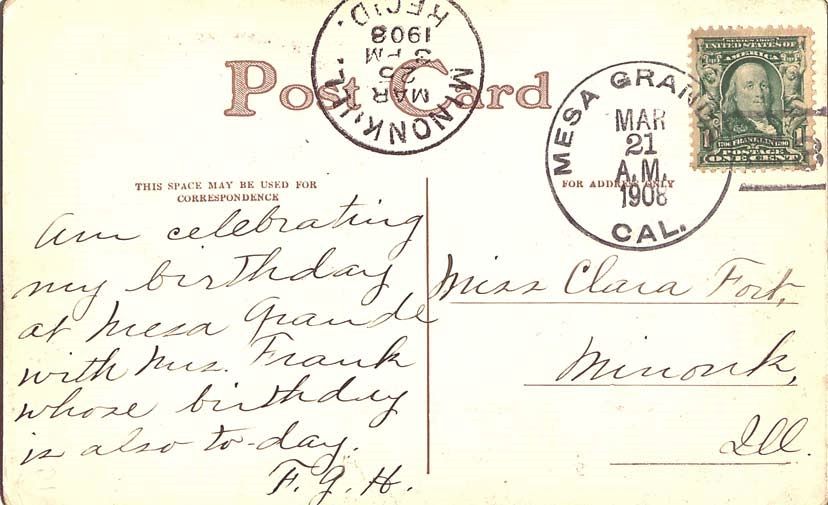 Post Card
MINONK, ILL.
MAR
25
3 PM
1908
REC'D.
MESA GRANDE
MAR
21
A.M.
1908
CAL.
SERIES 1902
UNITED STATES OF
AMERICA
1706 FRANKLIN 1790
1 POSTAGE 1
ONE CENT
THIS SPACE MAY BE USED FOR
CORRESPONDENCE
FOR ADDRESS ONLY
Am celebrating
my birthday
at Mesa Grande
with Mrs. Frank
whose birthday
is also to-day.
F. G. H.
Miss Clara Fort,
Minonk,
Ill.